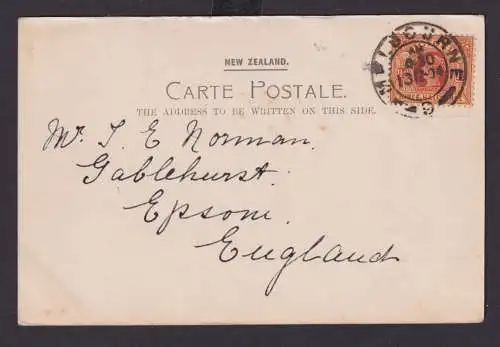 MELBOURNE
NEW ZEALAND.
CARTE POSTALE.
THE ADDRESS TO BE WRITTEN ON THIS SIDE.
Mr. T. E Norman.
Gablehurst.
Epsom.
England